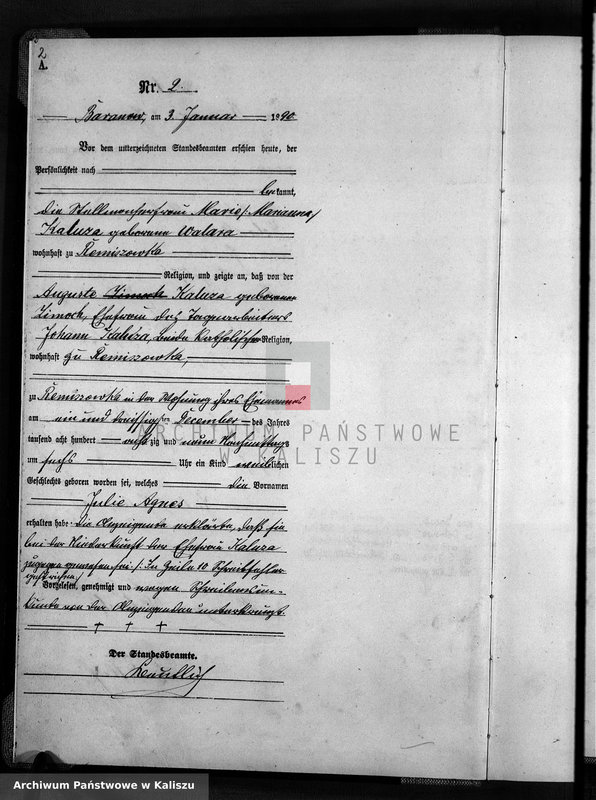 2
A.
Nr. 2.
Baranow, am 3. Januar 1890
Vor dem unterzeichneten Standesbeamten erschien heute, der
Persönlichkeit nach
bekannt,
die Stellmacherfrau Marie /: Marianna /
Kaluza geborene Walara
wohnhaft zu Remiszowka
Religion, und zeigte an, daß von der
Auguste Zimoch Kaluza geborenen
Zimoch, Ehefrau des Tagearbeiters
Johann Kaluza, beide katholischer Religion,
wohnhaft zu Remiszowka,
zu Remiszowka in der Wohnung ihres Ehemannes
am ein und dreißigsten December des Jahres
tausend acht hundert achtzig und neun Nachmittags
um sechs Uhr ein Kind weiblichen
Geschlechts geboren worden sei, welches die Vornamen
Julie Agnes
erhalten habe. Die Anzeigende erklärte, daß sie
bei der Niederkunft der Ehefrau Kaluza
zugegen gewesen sei. /: In Zeile 10 Schreibfehler
gestrichen /
Vorgelesen, genehmigt und wegen Schreibensun-
kunde von der Anzeigenden unterkreuzt.
+ + +
Der Standesbeamte.
ARCHIWUM PAŃSTWOWE
W KALISZU
Archiwum Państwowe w Kaliszu